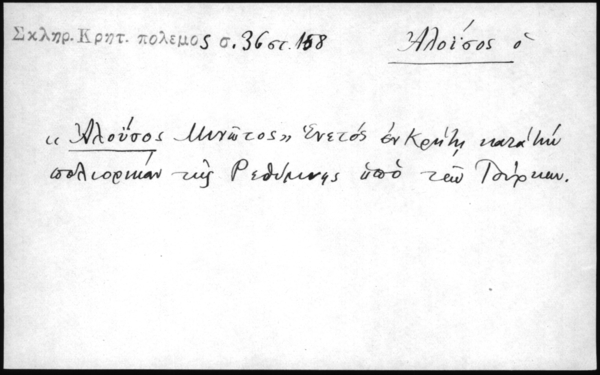 Σκληρ. Κρητ. πολεμος σ. 36 στ. 158
Ἀλοΐσος ὁ
« Ἀλοΰσος Μινῶτος» Ἑνετός ἐν Κρήτῃ κατὰ τὴν
πολιορκίαν τῆς Ρεθύμνης ὑπὸ τῶν Τούρκων.